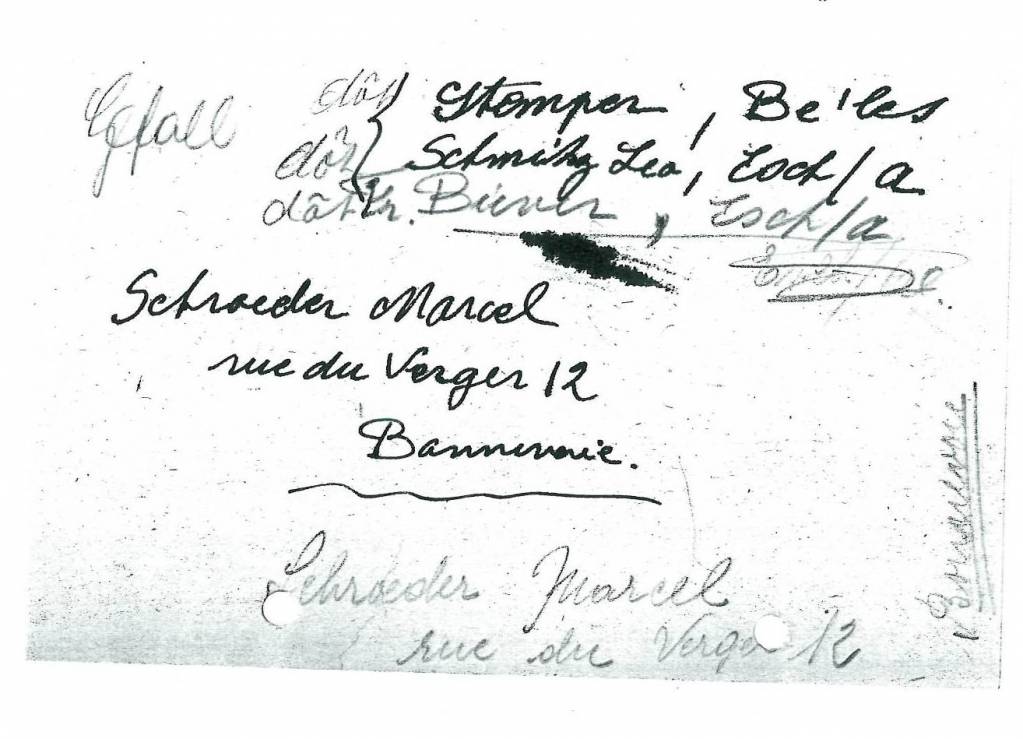 Gefall
dôt Stemper, Be'les
dôt Schmitz Leo, Esch/a
dôt Kr. Biever, Esch/a
Schroeder Marcel
rue du Verger 12
Bannevoie.
Schroeder Marcel
rue du Verger 12